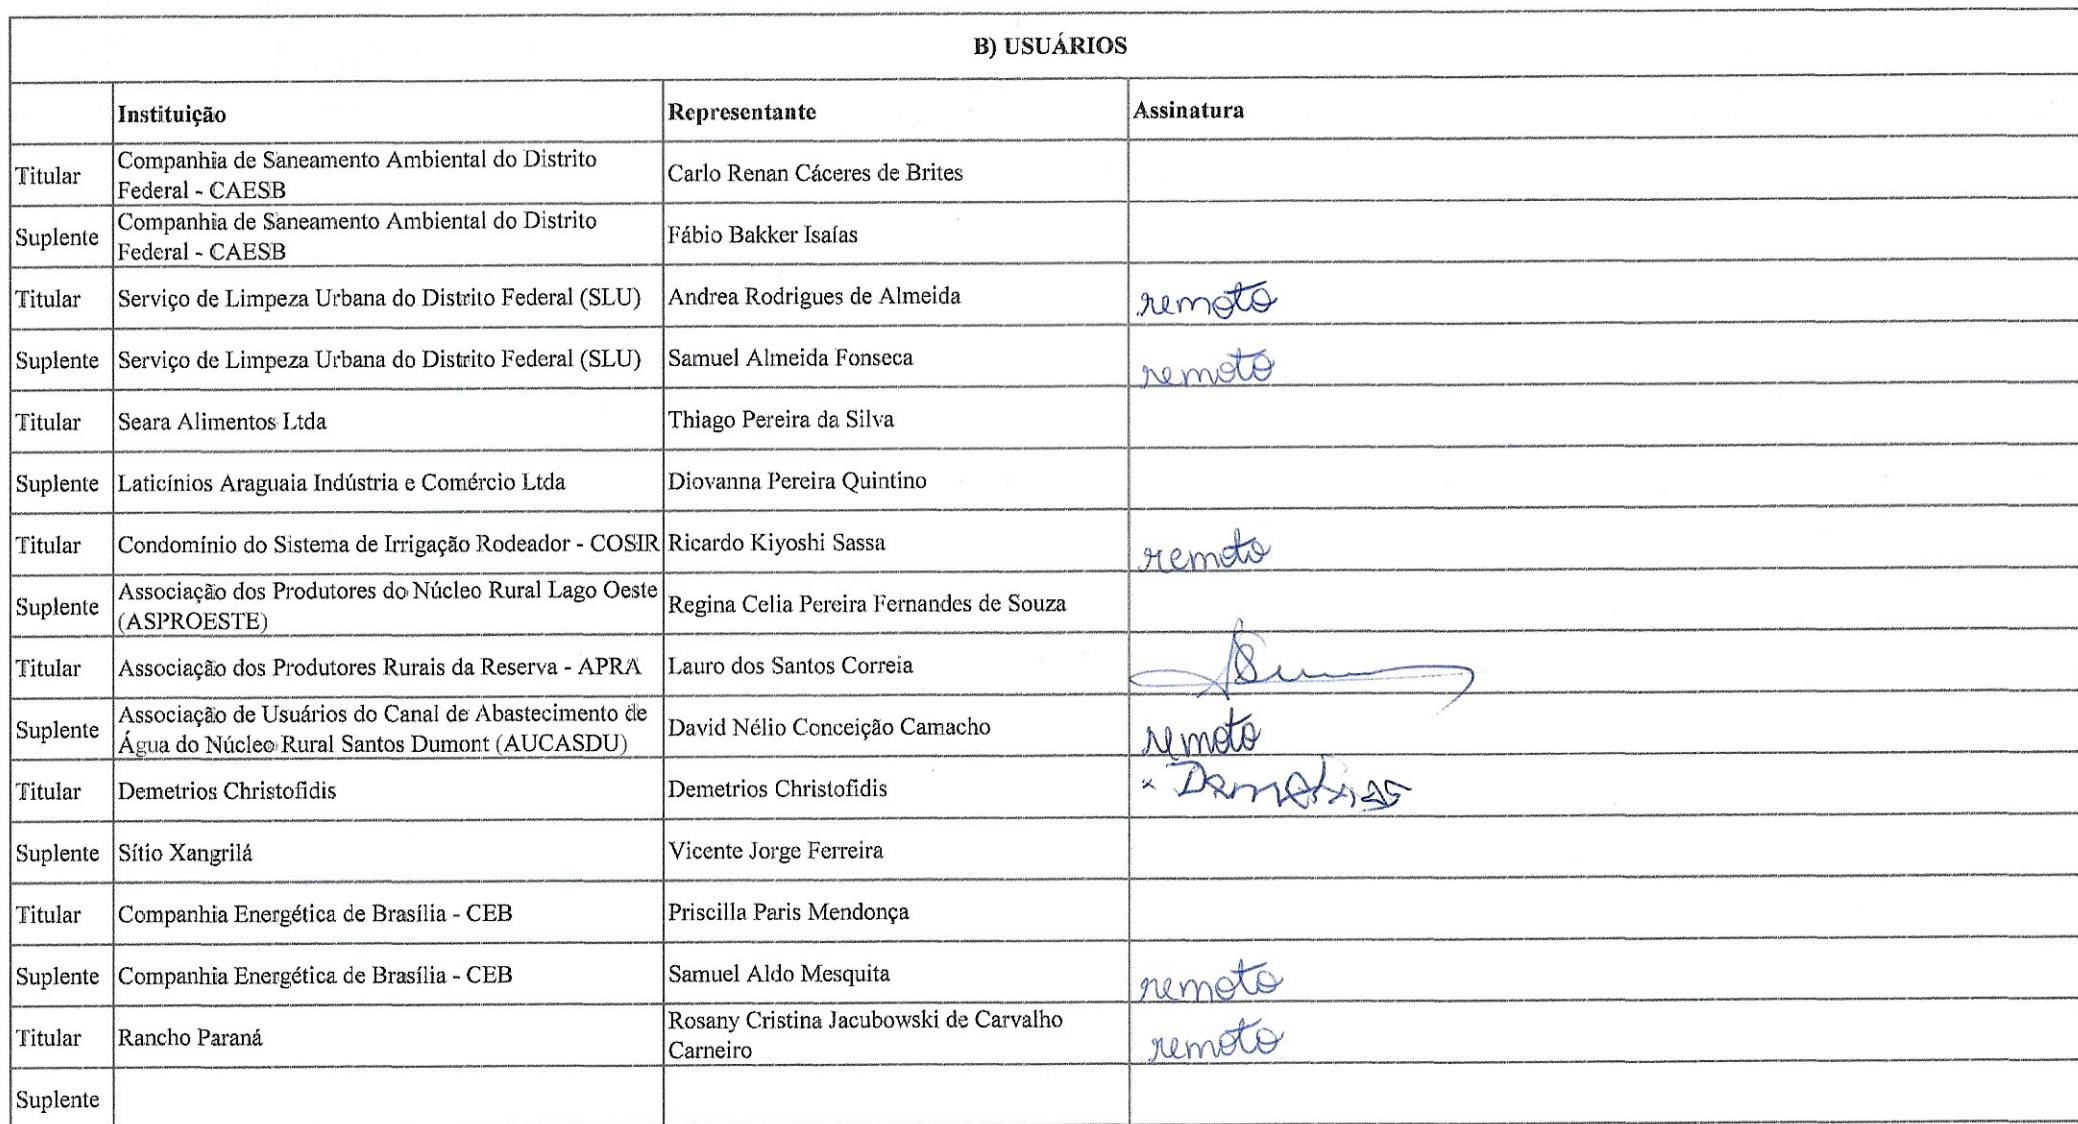 B) USUÁRIOS
Instituição Representante Assinatura
Titular Companhia de Saneamento Ambiental do Distrito Federal - CAESB Carlo Renan Cáceres de Brites
Suplente Companhia de Saneamento Ambiental do Distrito Federal - CAESB Fábio Bakker Isaías
Titular Serviço de Limpeza Urbana do Distrito Federal (SLU) Andrea Rodrigues de Almeida remoto
Suplente Serviço de Limpeza Urbana do Distrito Federal (SLU) Samuel Almeida Fonseca remoto
Titular Seara Alimentos Ltda Thiago Pereira da Silva
Suplente Laticínios Araguaia Indústria e Comércio Ltda Diovanna Pereira Quintino
Titular Condomínio do Sistema de Irrigação Rodeador - COSIR Ricardo Kiyoshi Sassa remoto
Suplente Associação dos Produtores do Núcleo Rural Lago Oeste (ASPROESTE) Regina Celia Pereira Fernandes de Souza
Titular Associação dos Produtores Rurais da Reserva - APRA Lauro dos Santos Correia
Suplente Associação de Usuários do Canal de Abastecimento de Água do Núcleo Rural Santos Dumont (AUCASDU) David Nélio Conceição Camacho remoto
Titular Demetrios Christofidis Demetrios Christofidis x Demetrios
Suplente Sítio Xangrilá Vicente Jorge Ferreira
Titular Companhia Energética de Brasília - CEB Priscilla Paris Mendonça
Suplente Companhia Energética de Brasília - CEB Samuel Aldo Mesquita remoto
Titular Rancho Paraná Rosany Cristina Jacubowski de Carvalho Carneiro remoto
Suplente